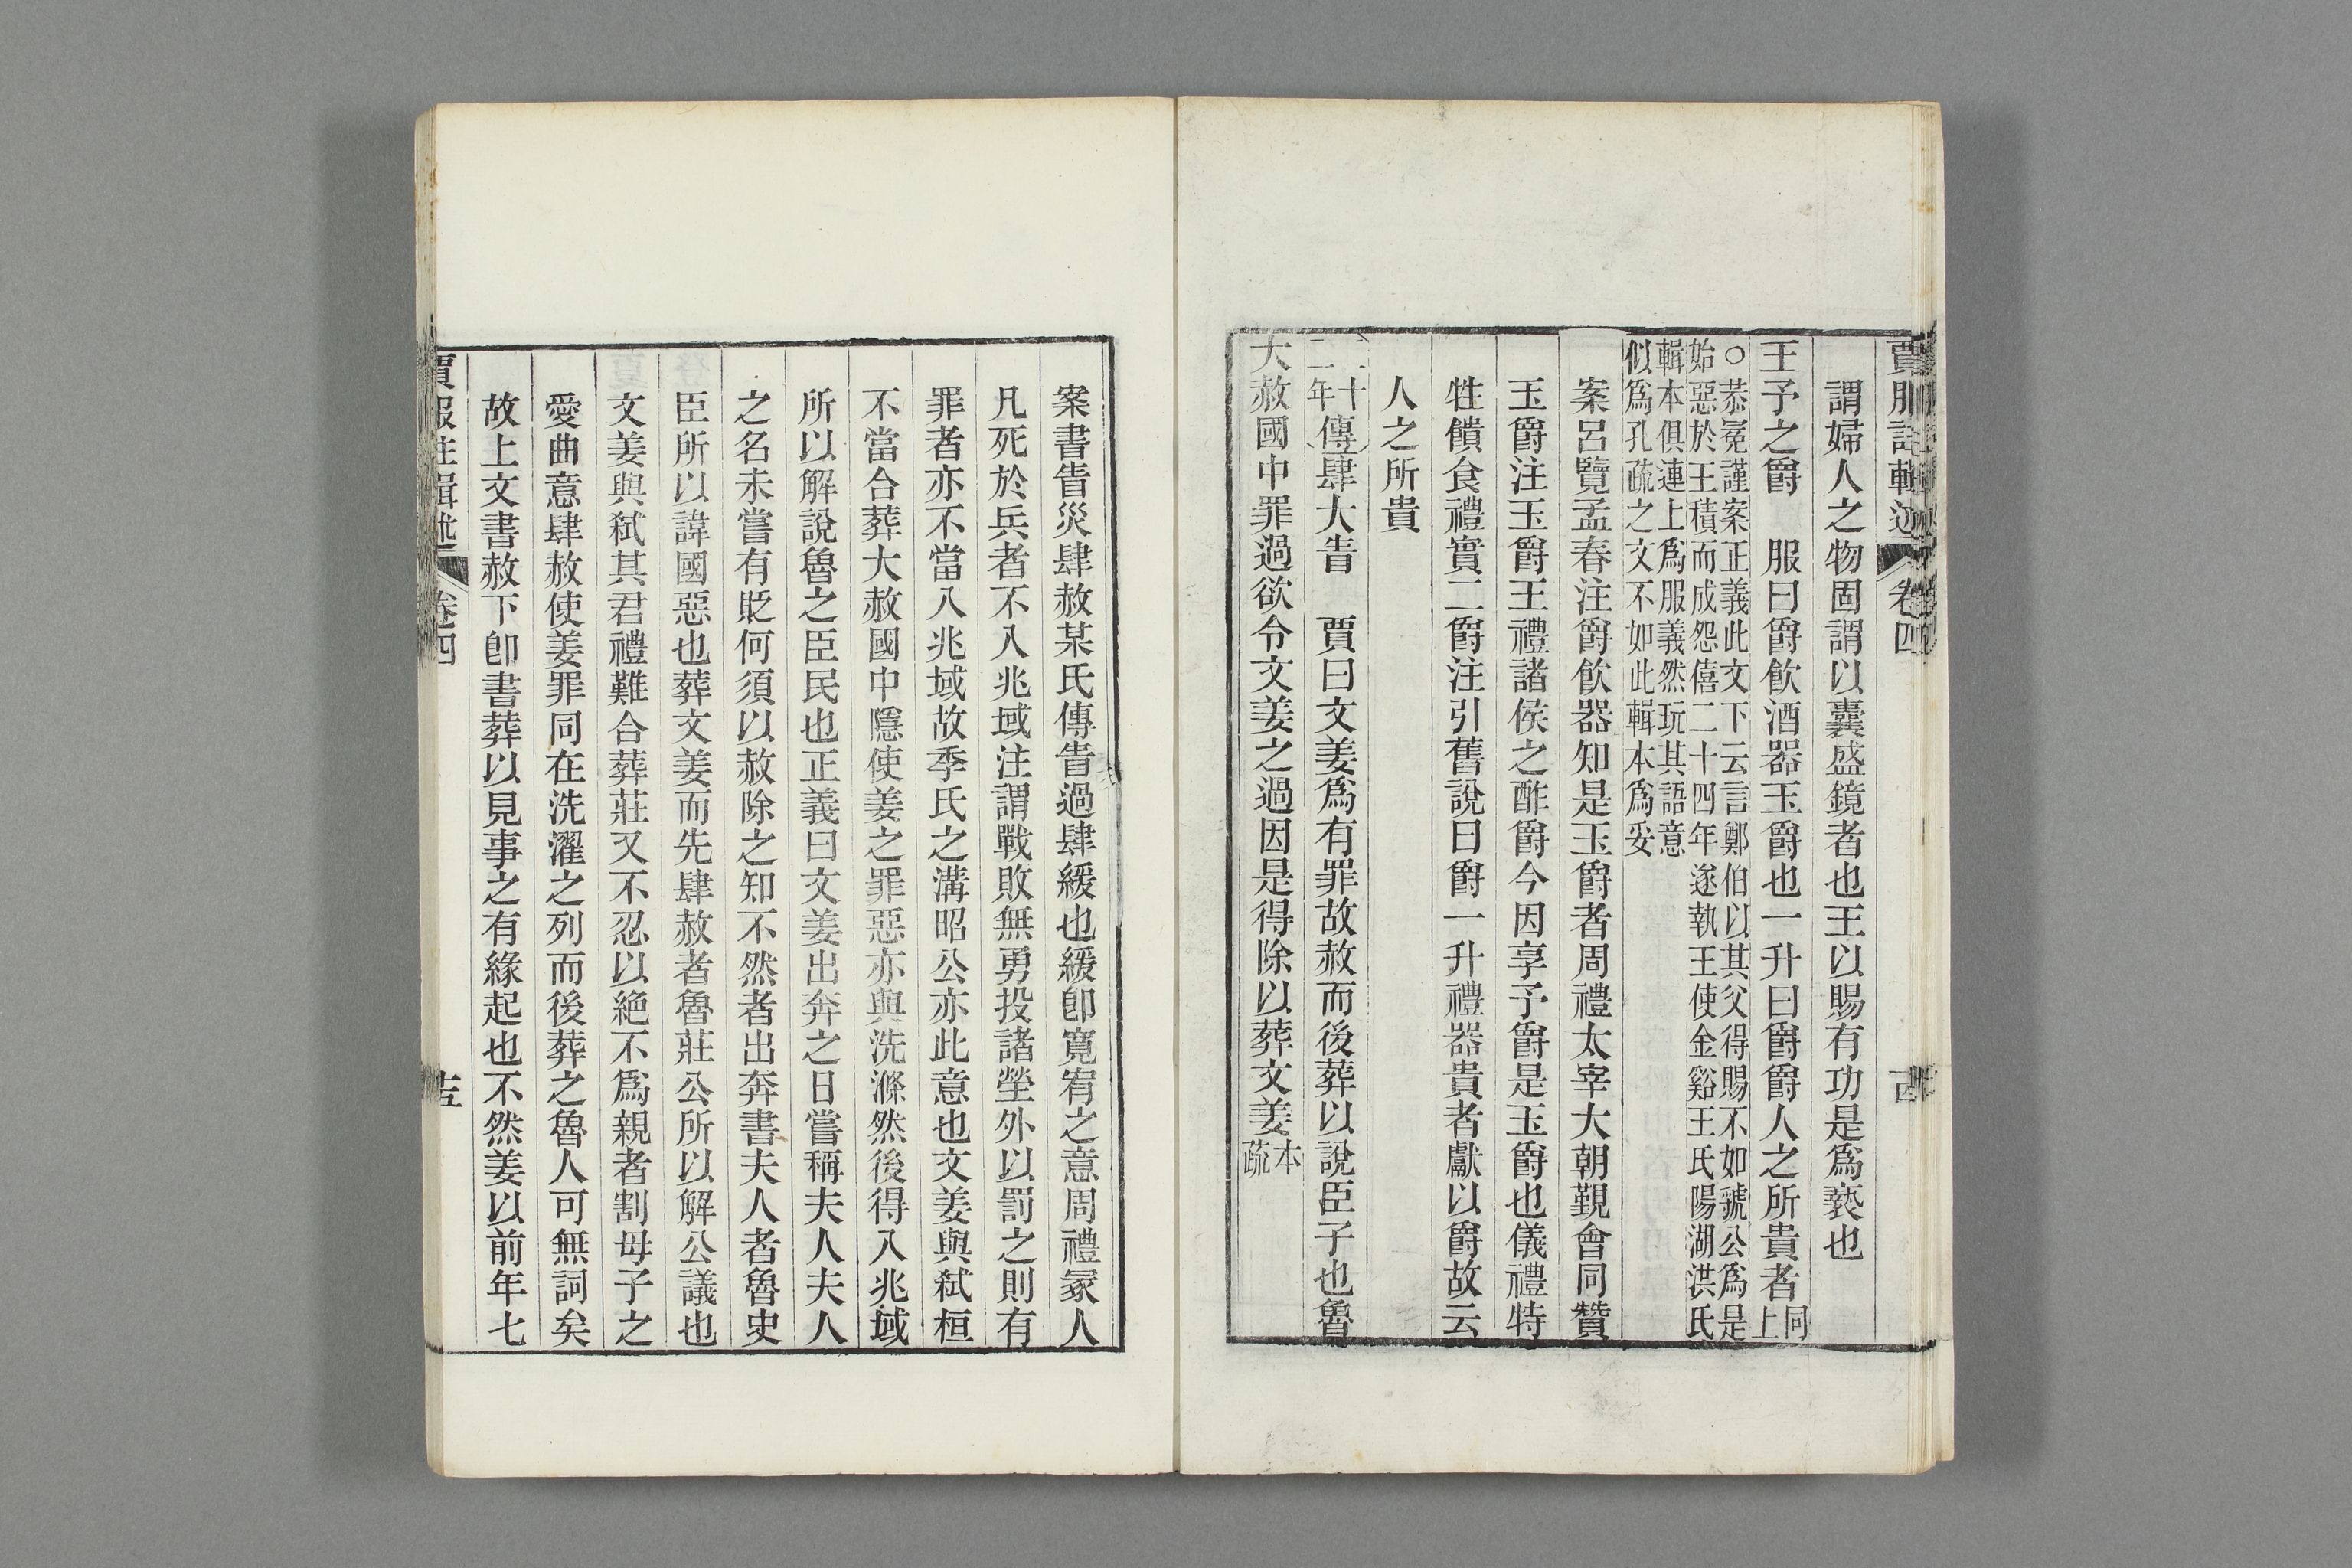 賈服註輯述 卷四
謂婦人之物固謂以囊盛鏡者也王以賜有功是爲褻也
王予之爵 服曰爵飮酒器玉爵也一升曰爵爵人之所貴者同上
○恭冕謹案正義此文下云言鄭伯以其父得賜不如虢公爲是
始惡於王積而成怨僖二十四年遂執王使金谿王氏陽湖洪氏
輯本俱連上爲服義然玩其語意
似爲孔疏之文不如此輯本爲妥
案呂覽孟春注爵飮器知是玉爵者周禮太宰大朝覲會同贊
玉爵注玉爵王禮諸侯之酢爵今因享予爵是玉爵也儀禮特
牲饋食禮實二爵注引舊說曰爵一升禮器貴者獻以爵故云
人之所貴
二十二年傳肆大眚 賈曰文姜爲有罪故赦而後葬以說臣子也魯
大赦國中罪過欲令文姜之過因是得除以葬文姜本疏
案書眚災肆赦某氏傳眚過肆緩也緩卽寬宥之意周禮冢人
凡死於兵者不入兆域注謂戰敗無勇投諸塋外以罰之則有
罪者亦不當入兆域故季氏之溝昭公亦此意也文姜與弑桓
不當合葬大赦國中隱使姜之罪惡亦與洗滌然後得入兆域
所以解說魯之臣民也正義曰文姜出奔之日嘗稱夫人夫人
之名未嘗有貶何須以赦除之知不然者出奔書夫人者魯史
臣所以諱國惡也葬文姜而先肆赦者魯莊公所以解公議也
文姜與弑其君禮難合葬莊又不忍以絶不爲親者割母子之
愛曲意肆赦使姜罪同在洗濯之列而後葬之魯人可無詞矣
故上文書赦下卽書葬以見事之有緣起也不然姜以前年七
賈服註輯述 卷四